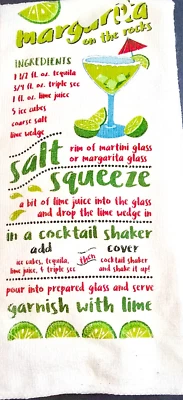 margarita
on the rocks
INGREDIENTS
1 1/2 fl. oz. tequila
3/4 fl. oz. triple sec
1 fl. oz. lime juice
5 ice cubes
coarse salt
lime wedge
salt
rim of martini glass
or margarita glass
squeeze
a bit of lime juice into the glass
and drop the lime wedge in
in a cocktail shaker
add
ice cubes, tequila,
lime juice, & triple sec
then
cover
cocktail shaker
and shake it up!
pour into prepared glass and serve
garnish with lime